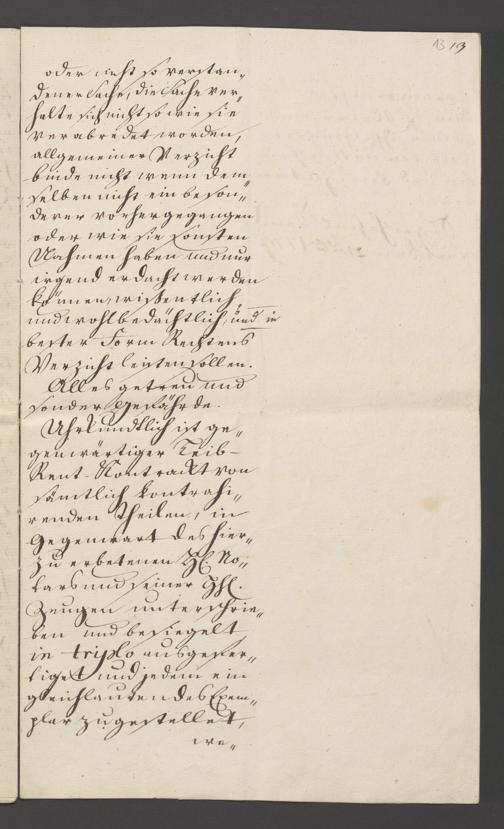 13 13
oder nicht so verstan„
dener Sache, die Sache ver„
halte sich nicht so wie sie
verabredet worden,
allgemeiner Verzicht
binde nicht wenn dem„
selben nicht ein beson„
derer vorhergegangen
oder wie sie sonsten
Nahmen haben und nur
irgend erdacht werden
können, wissentlich,
und wohlbedächtlich, und in
bester Form Rechtens
Verzicht leisten sollen.
Alles getreu und
sonder Gefährde.
Uhrkundtlich ist ge„
genwärtiger Leib-
Rent-Kontrackt von
sämtlich kontrahi„
renden Theilen, in
Gegenwart des hier„
zu erbetenen H. No„
tars und seiner
Zeugen unterschrie„
ben und besiegelt
in triplo ausgefer„
tiget und jedem ein
gleichlautendes Exem„
plar zugestellet,